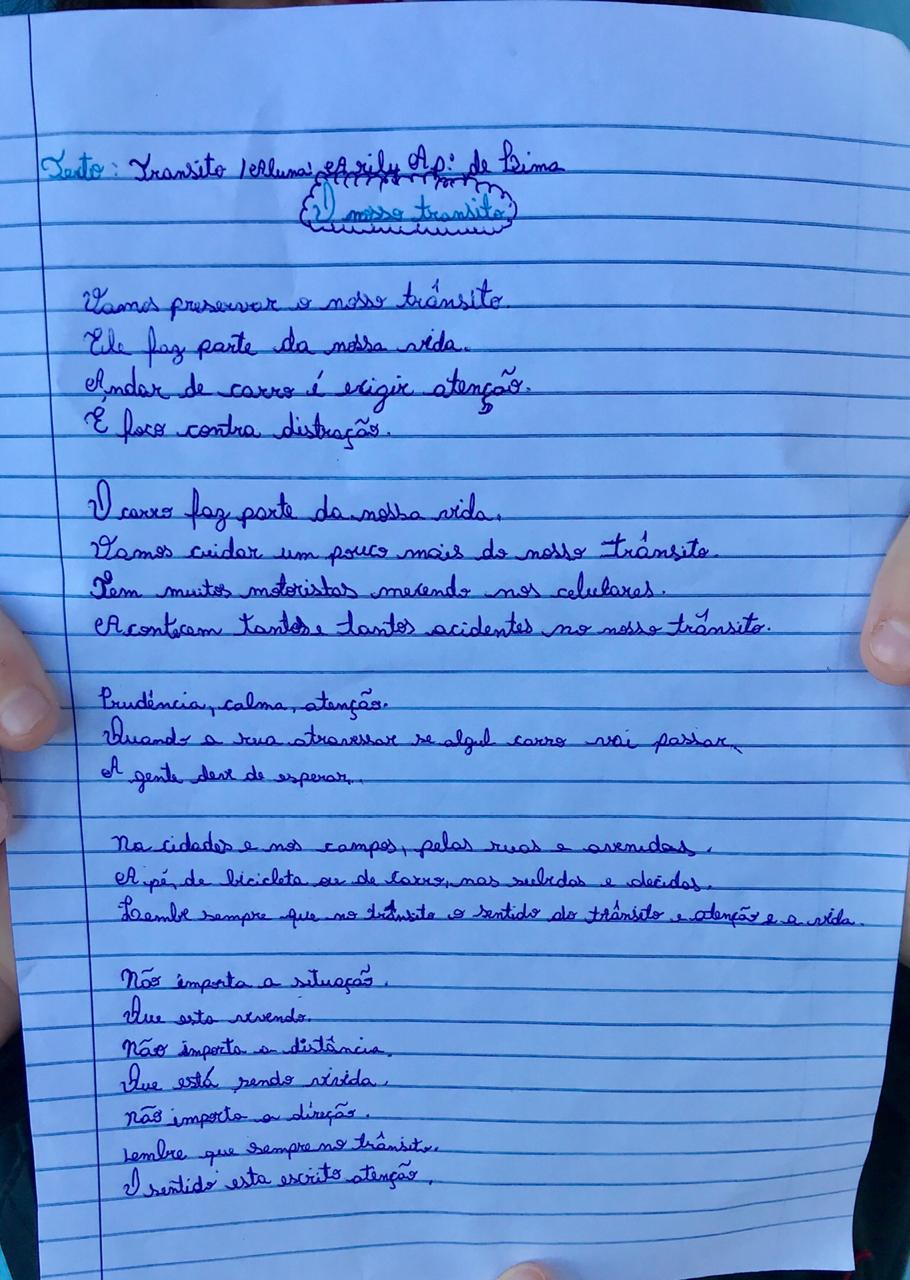 Texto: Transito /Aluna: Arily Ap: de Lima
O nosso transito
Vamos preservar o nosso trânsito.
Ele faz parte da nossa vida.
Andar de carro é exigir atenção.
E foco contra distração.
O carro faz parte da nossa vida.
Vamos cuidar um pouco mais do nosso trânsito.
Tem muitos motoristas mexendo nos celulares.
Acontecem tantos e tantos acidentes no nosso trânsito.
Prudência, calma, atenção.
Quando a rua atravessar se algul carro vai passar,
A gente deve de esperar.
Na cidades e nos campos, pelas ruas e avenidas.
A pé, de bicicleta ou de carro, nas subidas e decidas.
Lembre sempre que no trânsito o sentido do trânsito e atenção e a vida.
Não importa a situação.
Que esta vevendo.
Não importa a distância.
Que está sendo vivida.
não importa a direção.
Lembre que sempre no trânsito.
O sentido esta escrito atenção.